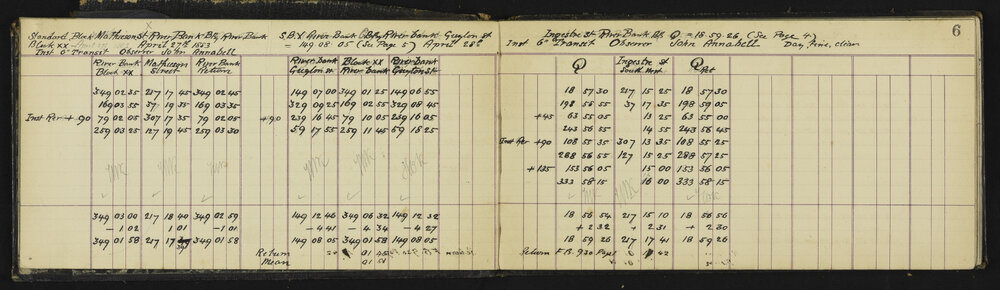 6
Standard, Block Mathieson St River Bank Bdy River Bank
Block XX April 27th 1883
Inst 6" Transit Observer John Annabell
S.B.X River Bank Bdy River Bank - Guyton St
= 149 08 05 (See Page 5) April 28th
Ingestre St River Bank Bdy Q = 18 59 26 (See Page 4)
Inst 6" Transit Observer John Annabell Day, Fine, clear
River Bank Block XX Mathieson Street River Bank Return
349 02 35 217 17 45 349 02 45
169 03 55 37 19 35 169 03 35
Inst Per + 90 79 02 05 307 17 35 79 02 05
259 03 25 127 19 45 259 03 30
349 03 00 217 18 40 349 02 59
- 1 02 1 01 - 1 01
349 01 58 217 17 39 349 01 58
River Bank Guyton St Block XX River Bank River Bank Guyton St
149 07 00 349 01 25 149 06 55
329 09 25 169 02 55 329 08 45
+ 90 239 16 45 79 10 05 239 16 05
59 17 55 259 11 45 59 18 25
149 12 46 349 06 32 149 12 32
- 4 41 - 4 34 - 4 27
149 08 05 349 01 58 149 08 05
Return
Mean 01 51
Q Ingestre St South West Q Ret
18 57 30 217 15 25 18 57 30
198 58 55 37 17 35 198 59 05
+45 63 55 05 13 25 63 55 00
243 56 55 14 55 243 56 45
Inst Per +90 108 55 35 307 13 35 108 55 25
288 56 55 127 15 25 288 57 25
+ 135 153 56 05 15 00 153 56 05
333 58 15 16 00 333 58 15
18 56 54 217 15 10 18 56 56
+ 2 32 + 2 31 + 2 30
18 59 26 217 17 41 18 59 26
Return F.B. 930 Page 42